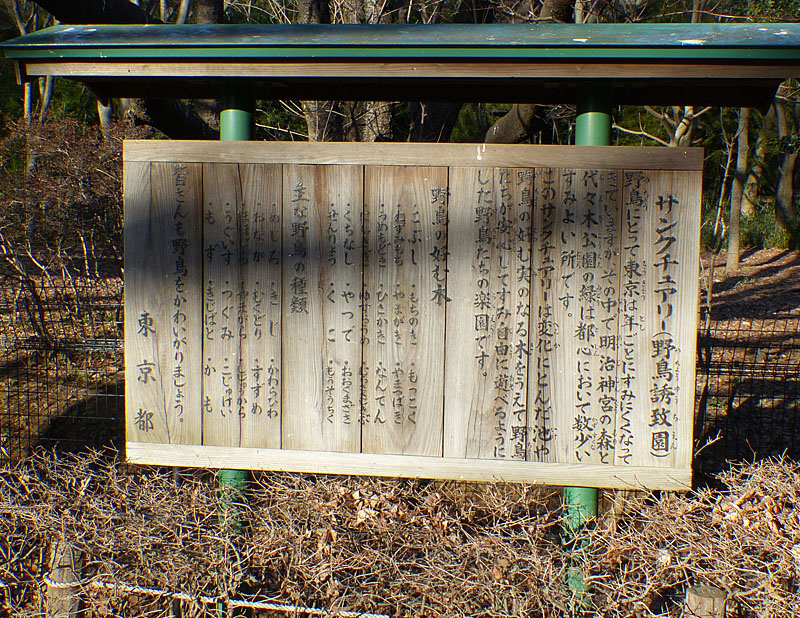 サンクチュアリー（野鳥誘致園）
野鳥にとって東京は年ごとにすみにくくなって
きていますが、その中で明治神宮の森と
代々木公園の緑は都心において数少い
すみよい所です。
このサンクチュアリーは変化にとんだ池や
野鳥の好む実のなる木をうえて野鳥
たちが安心してすみ自由に遊べるように
した野鳥たちの楽園です。
野鳥の好む木
・こぶし ・もちのき ・もっこく
・ねずみもち ・やまがき ・やまつばき
・うめもどき ・ひさかき ・なんてん
・むらさきしきぶ
・くちなし ・やつで ・おおくまざさ
・せんりょう ・くこ ・もうそうちく
主な野鳥の種類
・めじろ ・きじ ・かわらひわ
・おなが ・むくどり ・すずめ
・うぐいす ・つぐみ ・こじゅけい
・もず ・きじばと ・かも
皆さんも野鳥をかわいがりましょう。
東京都